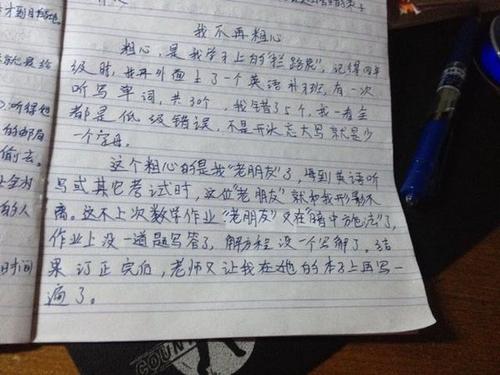 才到目的地
就是给
听得他
的邮局
偷去。
的人
时间
我不再粗心
粗心，是我学习上的“拦路虎”，记得四年
级时，我再外面上了一个英语补习班，有一次
听写单词，共30个，我错了5个，我一看全
都是低级错误，不是开头忘大写就是少
一个字母。
这个粗心的是我“老朋友”了，每到英语听
写或其它考试时，这位“老朋友”就和我形影不
离。这不上次数学作业“老朋友”又在“暗中施法”了，
作业上没一道题写答了，解方程没一个写解了，结
果订正完后，老师又让我在她的本子上再写一
遍了。
COUNT